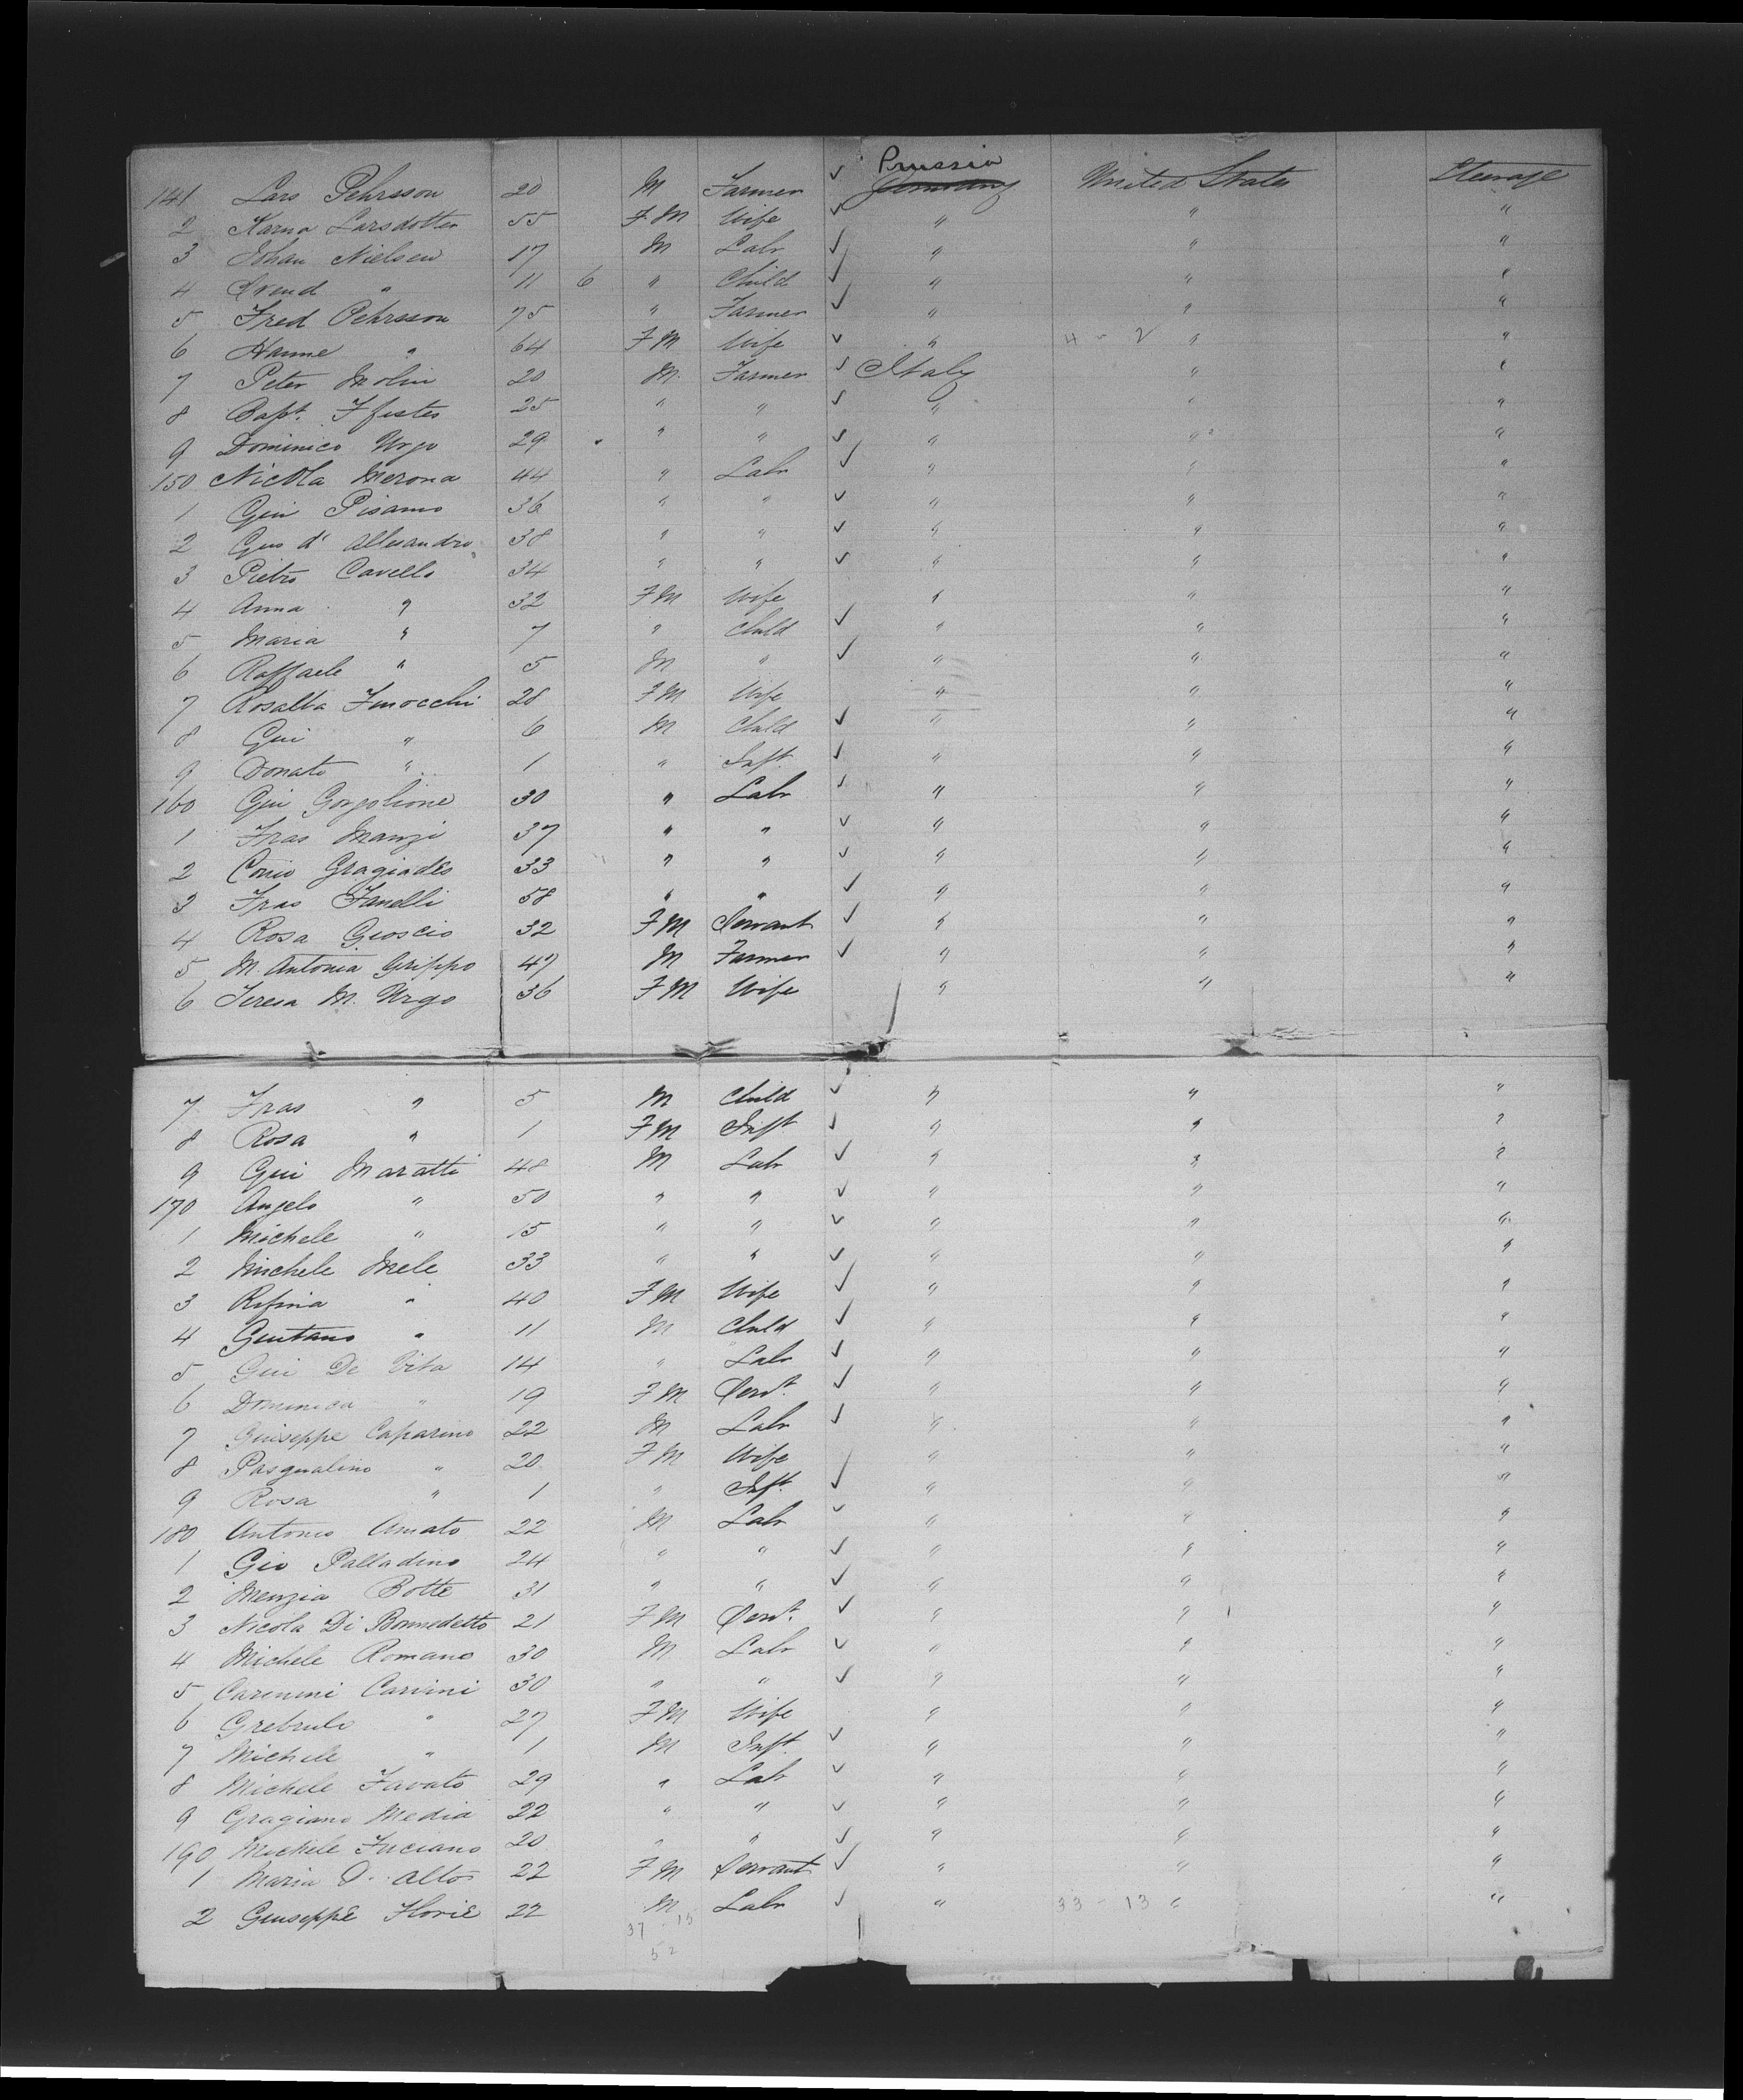 Prussia
141 Lars Pehrsson 20 M Farmer ✓ Germany United States Steerage
2 Karna Larsdotter 55 FM Wife ✓ " " "
3 Johan Nielsen 17 M Labr ✓ " " "
4 Svend " 11 6 " Child ✓ " " "
5 Fred Pehrsson 75 " Farmer ✓ " " "
6 Hanne " 64 FM Wife ✓ " 4 - 2 " "
7 Peter Molin 20 M. Farmer ✓ Italy " "
8 Bapt. 25 " " ✓ " " "
9 Dominico Urgo 29 " " ✓ " " "
150 Nicola Merona 44 " Labr ✓ " " "
1 Gui Pisamo 36 " " ✓ " " "
2 Gus d' Allesandro 38 " " ✓ " " "
3 Pietro Cavello 34 " " ✓ " " "
4 Anna " 32 FM Wife " " "
5 Maria " 7 " Child ✓ " " "
6 Raffaele " 5 M " ✓ " " "
7 Rosalba Finocchi 28 FM Wife " " "
8 Gui " 6 M Child ✓ " " "
9 Donato " 1 " Inft ✓ " " "
160 Gui Gorgolione 30 " Labr ✓ " " "
1 Fras Manzi 37 " " ✓ " " "
2 Gragiades 33 " " ✓ " " "
3 Fras Fanelli 58 " " ✓ " " "
4 Rosa Gioscio 32 FM Servant ✓ " " "
5 M. Antonia Grippo 47 M Farmer ✓ " " "
6 Teresa M. Urgo 36 FM Wife " " "
7 Fras " 5 M Child ✓ " " "
8 Rosa " 1 FM Inft ✓ " " "
9 Gui Maratti 48 M Labr ✓ " " "
170 Angelo " 50 " " ✓ " " "
1 Michele " 15 " " ✓ " " "
2 Michele Mele 33 " " ✓ " " "
3 Rifina " 40 FM Wife ✓ " " "
4 Guitano " 11 M Child ✓ " " "
5 Gui De Vita 14 " Labr ✓ " " "
6 Dominica " 19 FM Servt. ✓ " " "
7 Guiseppe Caparino 22 M Labr ✓ " " "
8 Pasqualino " 20 FM Wife " " "
9 Rosa " 1 " Inft. ✓ " " "
180 Antonio Amato 22 M Labr ✓ " " "
1 Gio Palladino 24 " " ✓ " " "
2 Menzia Botte 31 " " ✓ " " "
3 Nicola Di Bonnedetto 21 FM Servt. ✓ " " "
4 Michele Romano 30 M Labr ✓ " " "
5 Carmini Carvini 30 " " ✓ " " "
6 27 FM Wife " " "
7 Michele " 1 M Inft. ✓ " " "
8 Michele Favato 29 " Labr ✓ " " "
9 Gragiano Media 22 " " ✓ " " "
190 Michele Fuciano 20 " " ✓ " " "
1 Maria D. Altos 22 FM Servant ✓ " " "
2 Guseppe Florie 22 M Labr ✓ " 33 - 13 " "
37 - 15
52